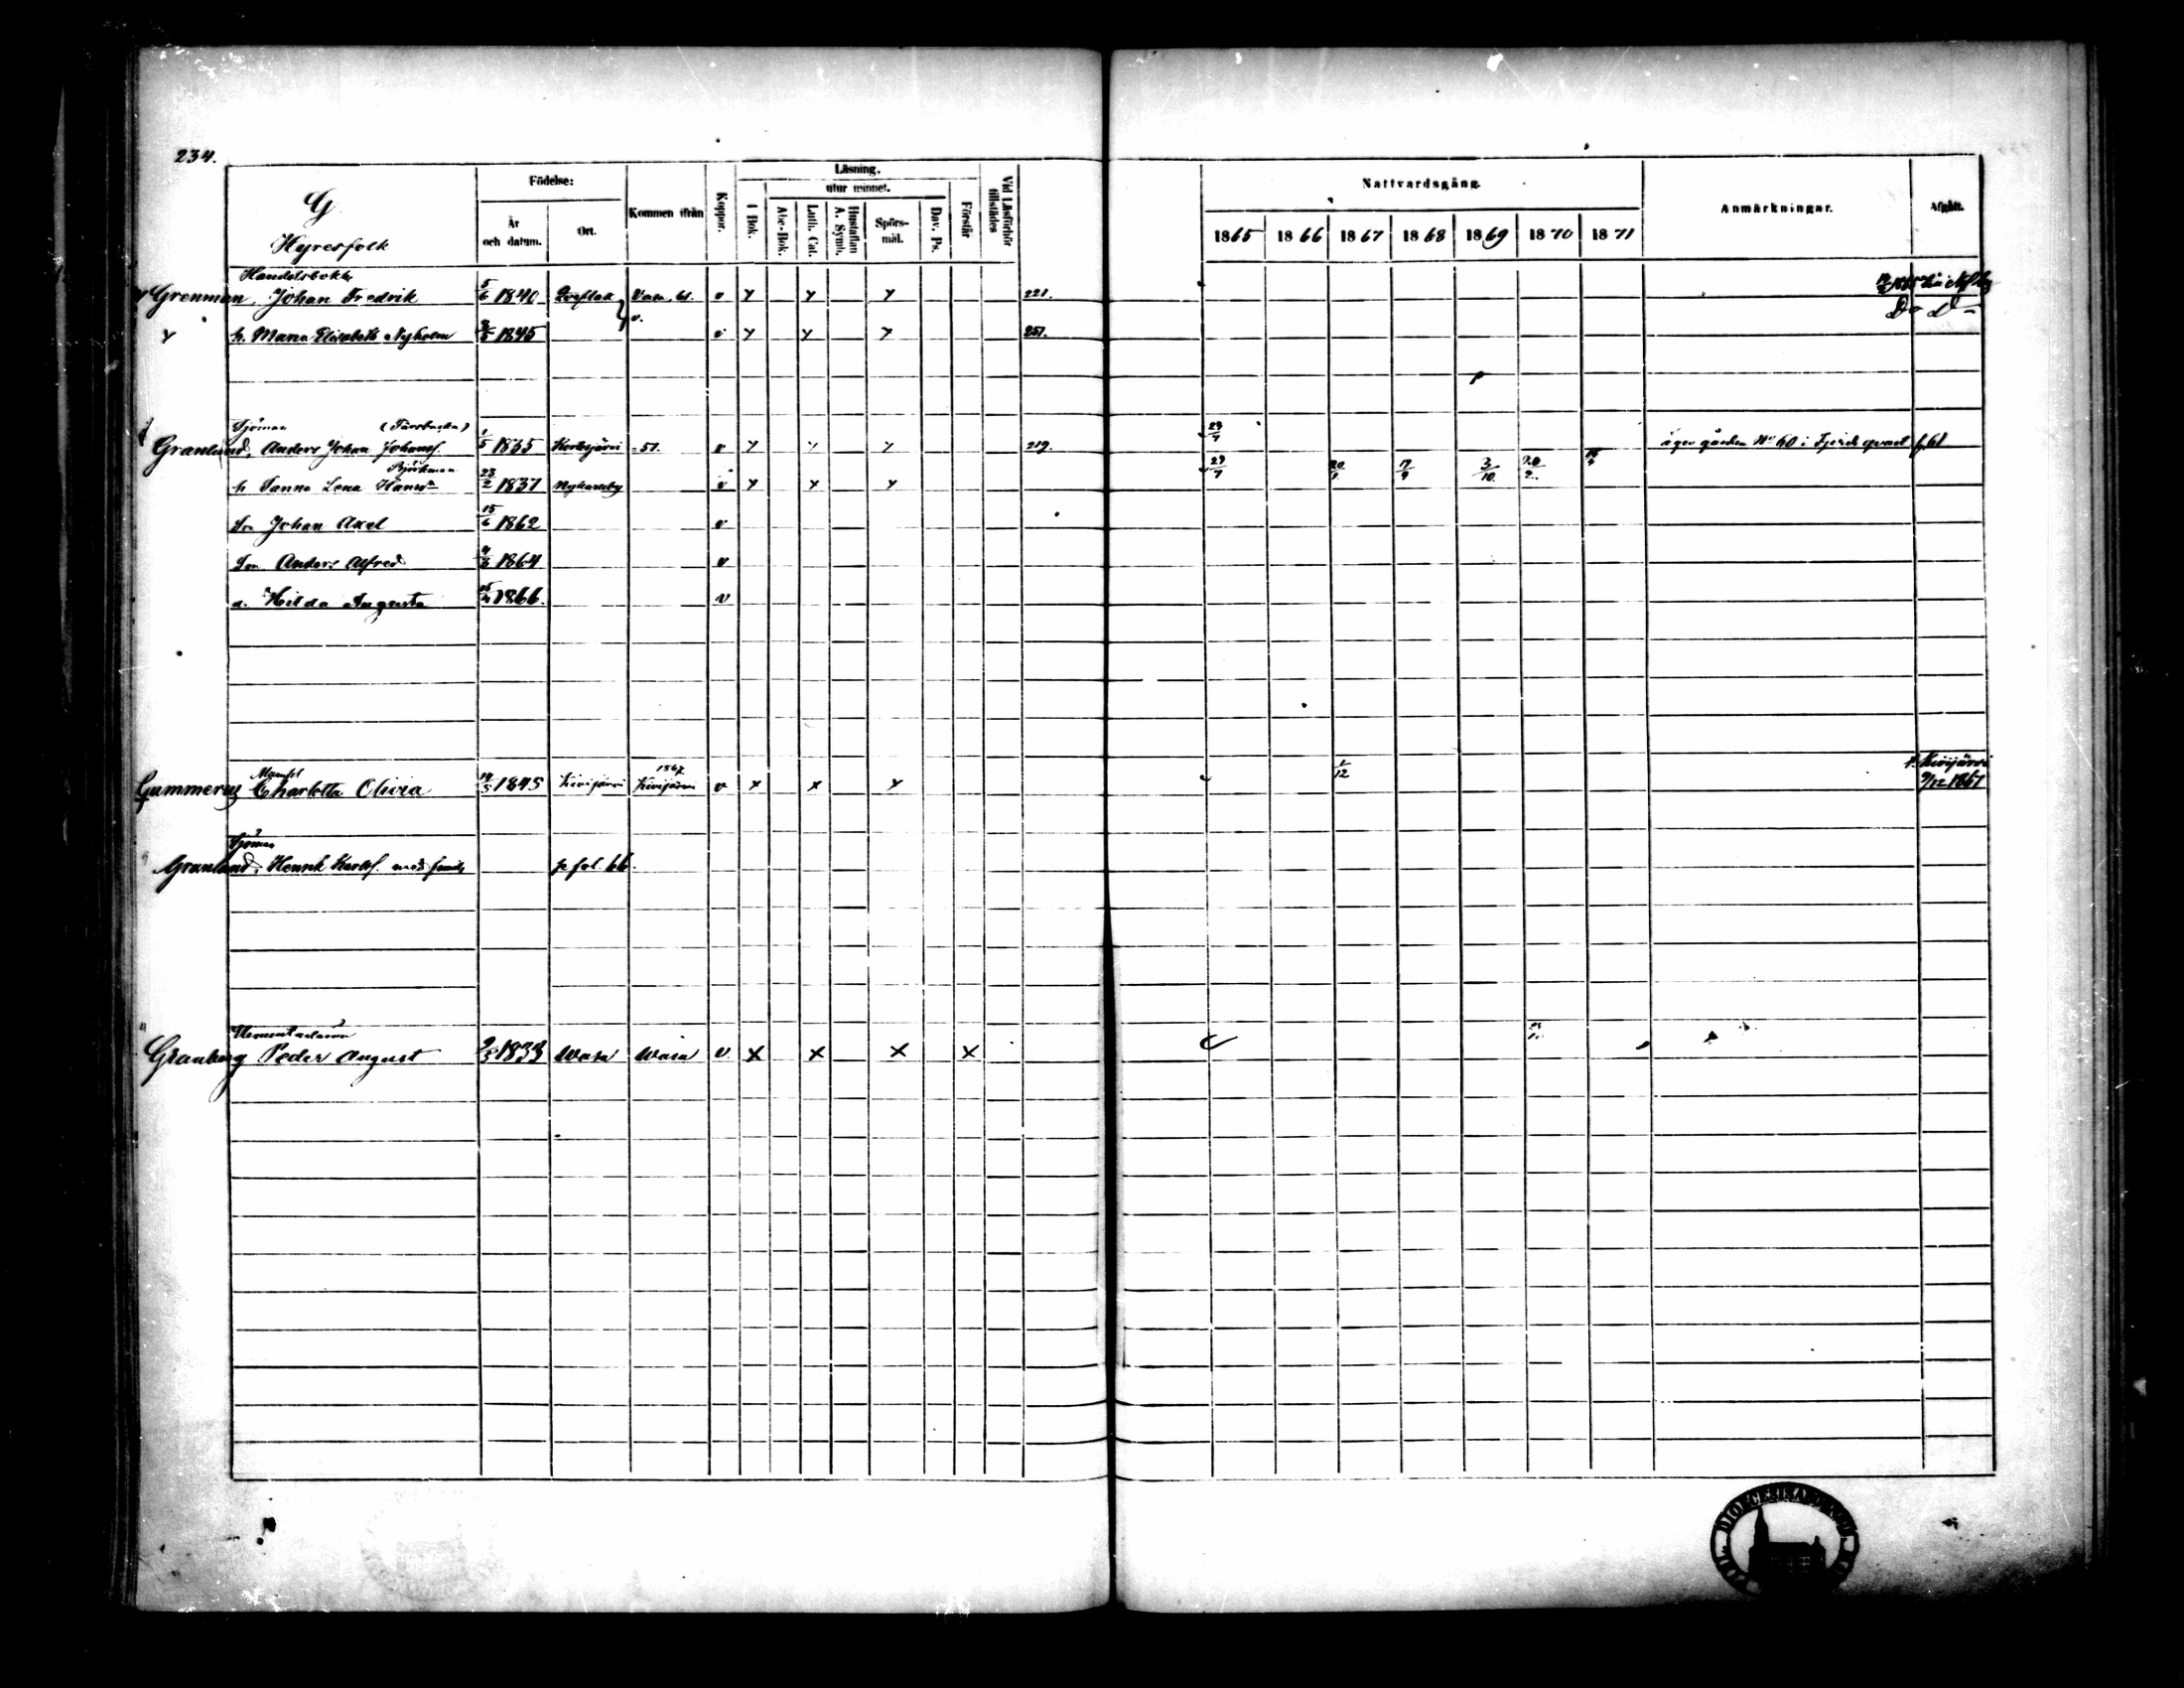 234.
G
Hyresfolk
Födelse:
År och datum.
Ort.
Kommen ifrån
Koppor.
Läsning.
utur minnet.
I Bok.
Abc-Bok.
Luth. Cat.
Hustaflan A. Symb.
Spörsmål.
Dav. Ps.
Förstår
Vid Läsförhör tillstädes
Nattvardsgång.
1865 1866 1867 1868 1869 1870 1871
Anmärkningar.
Afgått.
Handelsbokh.
Grenman, Johan Fredrik 5/6 1840 Qveflax Vasa, 61. v 221.
h. Maria Elisabeth Nyholm 1845 v 251.
Do D
Sjöman
Granlund, Anders Johan Johansf. 1/5 1835 Kortesjärvi -57. v 219. 29/7 äger gården No 60 i Fjerde qvart. f. 61
Björkman
h. Sanna Lena Hansd. 23/2 1837 Nykarleby v 29/7 3/10
Son Johan Axel 15/6 1862 v
Son Anders Alfred 1864 v
d. Hilda Augusta 1866. v
Mamsell
Gummerus Charlotta Olivia 1845 Kivijärvi 1867 Kivijärvi v 1/12 Kivijärvi 9/12 1867
Sjöman
Granlund, Henrik Karlsf. med familj p. fol. 66.
Granberg Peder August 1833 Wasa Wasa v